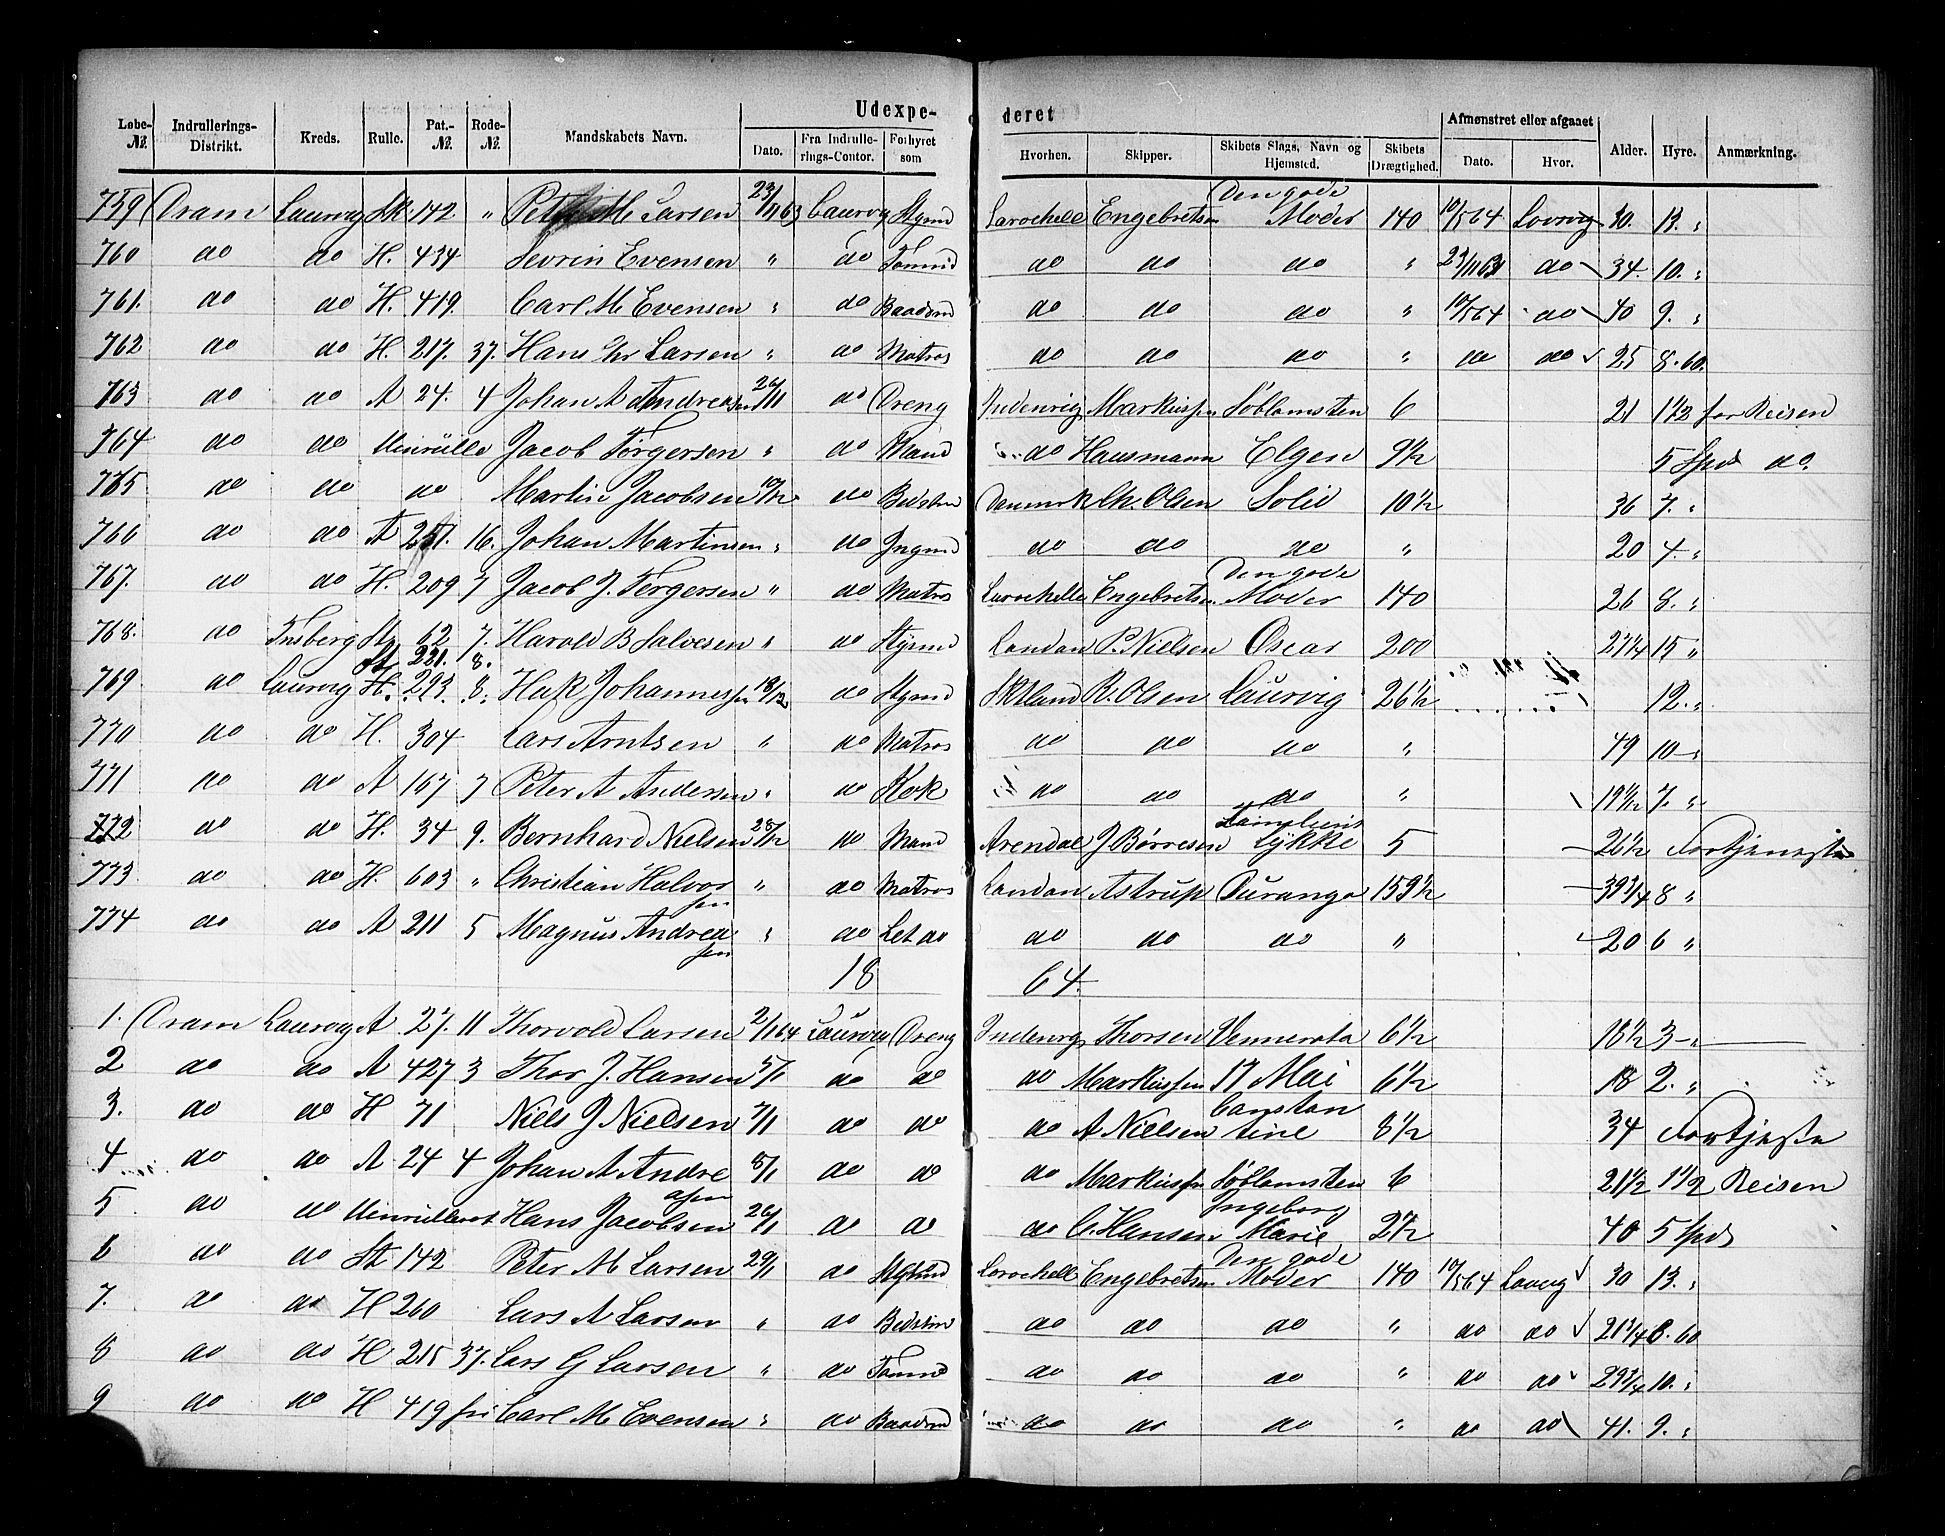 Udexpederet
Løbe-№. Indrullerings-Distrikt. Kreds. Rulle. Pat.-№. Rode-№. Mandskabets Navn. Dato. Fra Indrullerings-Contor. Forhyret som Hvorhen. Skipper. Skibets Slags, Navn og Hjemsted. Skibets Drægtighed. Afmønstret eller afgaaet Dato. Hvor. Alder. Hyre. Anmærkning.
759 Dram Laurvig St 142 " Peter M Larsen 23/11 63 Laurvig Stymd Larochelle Engebretsen Den gode Moder 140 10/5 64 Lavrvig 30. 13. "
760 do do H. 434 Sevrin Evensen " do Tømmd do do do " do 34. 10. "
761. do do H. 419. Carl M Evensen " do Baadsmd do do do " 10/5 64 do 40 9. "
762 do do H. 217. 37. Hans Chr Larsen " do Matros do do do " do do 25 8.60.
763 do do A 24. 4 Johan A Andreasen 26/11 do Dreng Indenrigs Markussen Søblomsten 6 21 1 1/2 for Reisen
764 do do Uinrulle Jacob Tørgersen " do Mand do Hausmann Elgen 9 1/2 5 Spd do.
765 do do do Martin Jacobsen 10/12 do Bedstm Danmark Chr. Olsen Solid 10 1/2 36 7. "
766 do do A 251. 16. Johan Martinsen " do Jngmd do do do " 20 4. "
767. do do H. 209 7 Jacob J. Tørgersen " do Matros Larochelle Engebretsen Den gode Moder 140 26 8. "
768. do Tnsberg St 62 7. Harald B Salvesen " do Stymd London P. Nielsen Oscar 200 27 1/4 15 "
St 221. 8.
769 do Laurvig H. 293. 8. Hak Johannessen 18/12 do Stymd Sktland R. Olsen Laurvig 26 1/2 12. "
770 do do H. 304 Lars Arntsen " do Matros do do do " 49 10 "
771 do do A 167 7 Peter A Andersen " do Kok do do do " 19 1/2 7. "
772 do do H. 34 9. Bernhard Nielsen 28/12 do Mand Arendal J Børresen Familiens Lykke 5 26 1/2 Fortjeneste
773 do do H. 603 " Christian Halvorsen " do Matros London Astrup Durango 159 1/2 39 3/4 8 "
774 do do A 211 5 Magnus Andreasen " do Let do do do do " 20 6 "
18 64.
1. Dram Laurvig A 27. 11 Thorvold Larsen 2/1 64 Laurvig Dreng Indenrigs Thorsen Vennerata 6 1/2 18 1/2 3 "
2 do do A 427 3 Thor J. Hansen 5/1 do do do Markussen 17 Mai 6 1/2 18 2. "
3. do do H 71 Niels J Nielsen 7/1 do do do A Nielsen Constantine 8 1/2 34 Fortjeste
4 do do A 24 4 Johan A Andreasen 8/1 do do do Markussen Søblomsten 6 21 1/2 1 1/2 Reisen
5 do do Uinrulleret Hans Jacobsen 26/1 do do do C. Hansen Ingeborg Marie 2 1/2 40 5 Spd
6 do do St 142 Peter M Larsen 29/1 do Stymd Larochelle Engebretsen Den gode Moder 140 10/5 64 Lavrvig 30 13. "
7. do do H 260 Lars A Larsen " do Bedstm do do do " do do 21 3/4 8.60
8 do do H 215 37. Lars G Larsen " do Tømmd do do do " do do 29 3/4 10. "
9 do do H 419 fri Carl M Evensen " do Baadsmd do do do " do do 41. 9. "